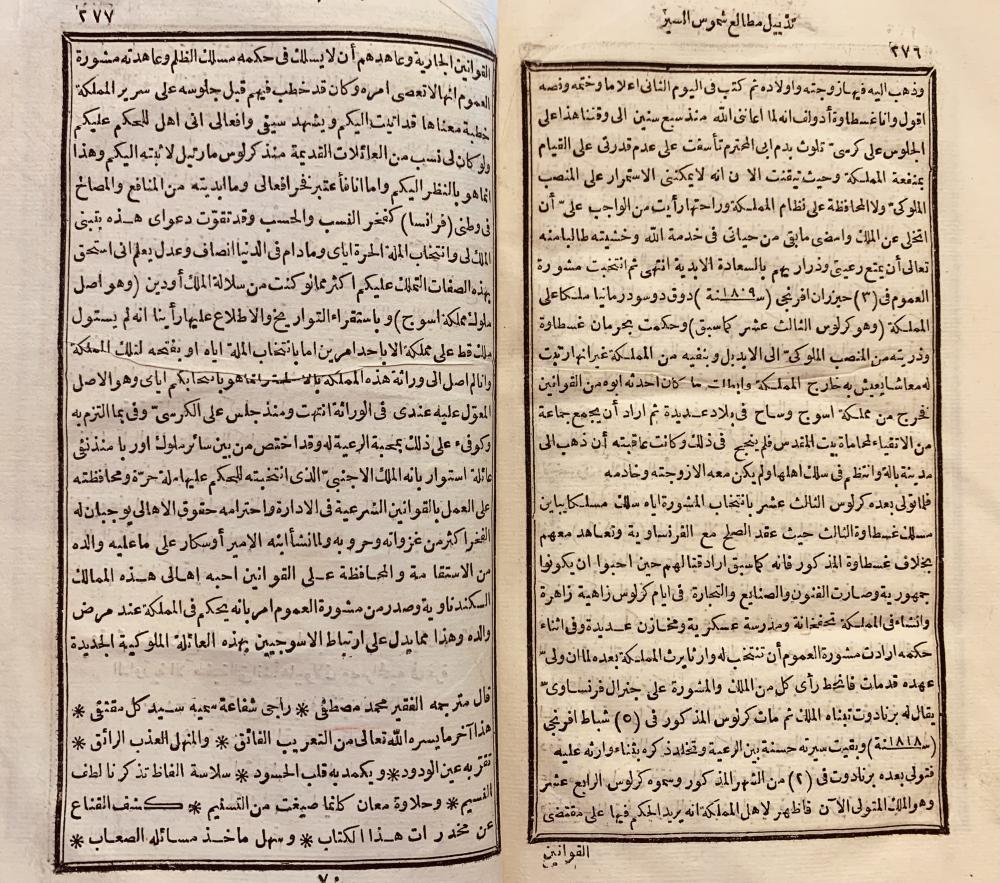 تذييل مطالع شموس السير
٢٧٦
وذهب اليه فيها زوجته واولاده ثم كتب فى اليوم الثانى اعلاما وختمه ونصه
اقول وانا غسطاوة أدولف انه لما اعاننى الله منذ سبع سنين الى وقتنا هذا على
الجلوس على كرسىّ تلوث بدم ابى المحترم تأسفت على عدم قدرتى على القيام
بمنفعة المملكة وحيث تيقنت الآن انه لا يمكننى الاستمرار على المنصب
الملوكىّ ولا المحافظة على نظام المملكة وراحتها رأيت من الواجب علىّ أن
اتخلى عن الملك وامضى مابقى من حياتى فى خدمة الله وخشيته طالبا منه
تعالى أن يمتع رعيتى وذراريهم بالسعادة الابدية انتهى ثم انتخبت مشورة
العموم فى (٣) حيزران افرنجى (سـ١٨٠٩ـنة) دوق دوسودرمانيا ملكا على
المملكة (وهو كرلوس الثالث عشر كما سبق) وحكمت بحرمان غسطاوة
وذريته من المنصب الملوكىّ الى الابد بل وبنفيه من المملكة غير انها رتبت
له معاشا يعيش به خارج المملكة وابطلت ما كان احدثه ابوه من القوانين
فخرج من مملكة اسوج وساح فى بلاد عديدة ثم اراد أن يجمع جماعة
من الاتقياء لمحاماة بيت المقدس فلم ينجح فى ذلك وكانت عاقبته أن ذهب الى
مدينة بالة وانتظم فى سلك اهلها ولم يكن معه الا زوجته وخادمه
فلما تولى بعده كرلوس الثالث عشر بانتخاب المشورة اياه سلك مسلكا يباين
مسلك غسطاوة الثالث حيث عقد الصلح مع الفرنساوية وتعاهد معهم
بخلاف غسطاوة المذكور فانه كما سبق اراد قتالهم حين احبوا ان يكونوا
جمهورية وصارت الفنون والصنايع والتجارة فى ايام كرلوس زاهية زاهرة
وانشاء فى المملكة تحفخانة ومدرسة عسكرية ومخازن عديدة وفى اثناء
حكمه ارادت مشورة العموم أن تنتخب له وارثا يرث المملكة بعده لما ان ولىّ
عهده قد مات فانحط رأى كل من الملك والمشورة على جنرال فرنساوىّ
يقال له برنادوت تبناه الملك ثم مات كرلوس المذكور فى (٥) شباط افرنجى
(سـ١٨١٨ـنة) وبقيت سيرته حسنة بين الرعية وتخلد ذكره بثناء وارثه عليه
فتولى بعده برنادوت فى (٢) من الشهر المذكور وسموه كرلوس الرابع عشر
وهو الملك المتولى الآن فاظهر لاهل المملكة انه يريد الحكم فيها على مقتضى
القوانين
٢٧٧
القوانين الجارية وعاهدهم أن لا يسلك فى حكمه مسلك الظلم وعاهدته مشورة
العموم انها لا تعصى امره وكان قد خطب فيهم قبل جلوسه على سرير المملكة
خطبة معناها قد اتيت اليكم ويشهد سيفى وافعالى انى اهل للحكم عليكم
ولو كان لى نسب من العائلات القديمة منذ كرلوس مارتيل لاثبته اليكم وهذا
انما هو بالنظر اليكم واما انا فأعتبر فخر افعالى وما ابديته من المنافع والمصالح
فى وطنى (فرانسا) كفخر النسب والحسب وقد تقوّت دعواى هذه بتبنى
الملك لى وانتخاب الملة الحرة اياى ومادام فى الدنيا انصاف وعدل يعلم انى استحق
بهذه الصفات التملك عليكم اكثر مما لو كنت من سلالة الملك أودين (وهو اصل
ملوك مملكة اسوج) و باستقراء التواريخ والاطلاع عليها رأينا انه لم يستول
ملك قط على مملكة الا باحد امرين اما بانتخاب الملة اياه او بفتحه لتلك المملكة
وانا لم اصل الى وراثة هذه المملكة هو بانتخابكم اياى وهو الاصل
المعوّل عليه عندى فى الوراثة انتهت ومنذ جلس على الكرسىّ وفى بما التزم به
وكوفىء على ذلك بمحبة الرعية له وقد اختص من بين سائر ملوك اوربا منذ نفى
عائلة استوار بانه الملك الاجنبىّ الذى انتخبته للحكم عليها ملة حرّة ومحافظته
على العمل بالقوانين الشرعية فى الادارة واحترامه حقوق الاهالى يوجبان له
الفخر اكثر من غزواته وحروبه ولما نشأ ابنه الامير أوسكار على ما عليه والده
من الاستقامة والمحافظة على القوانين احبه اهالى هذه الممالك
السكندناوية وصدر من مشورة العموم امر بانه يحكم فى المملكة عند مرض
والده وهذا مما يدل على ارتباط الاسوجيين بهذه العائلة الملوكية الجديدة
قال مترجمه الفقير محمد مصطفى * راجى شفاعة سميه سيد كل مقتفى *
هذا آخر ما يسره الله تعالى من التعريب الفائق * والمنهل العذب الرائق *
تقرّ به عين الودود * ويكمد به قلب الحسود * سلاسة الفاظ تذكرنا لطف
النسيم * وحلاوة معان كانما صيغت من التسنيم * كشف القناع
عن مخدرات هذا الكتاب * وسهل مأخذ مسائله الصعاب *
٧٠